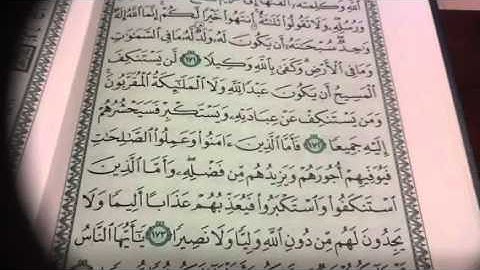 اللَّهِ وَكَلِمَتُهُ أَلْقَاهَا إِلَىٰ
وَرُسُلِهِ وَلَا تَقُولُوا ثَلَاثَةٌ انتَهُوا خَيْرًا لَّكُمْ إِنَّمَا اللَّهُ إِلَٰهٌ
وَاحِدٌ سُبْحَانَهُ أَن يَكُونَ لَهُ وَلَدٌ لَّهُ مَا فِي السَّمَاوَاتِ
وَمَا فِي الْأَرْضِ وَكَفَىٰ بِاللَّهِ وَكِيلًا ١٧١ لَّن يَسْتَنكِفَ
الْمَسِيحُ أَن يَكُونَ عَبْدًا لِّلَّهِ وَلَا الْمَلَائِكَةُ الْمُقَرَّبُونَ
وَمَن يَسْتَنكِفْ عَنْ عِبَادَتِهِ وَيَسْتَكْبِرْ فَسَيَحْشُرُهُمْ
إِلَيْهِ جَمِيعًا ١٧٢ فَأَمَّا الَّذِينَ آمَنُوا وَعَمِلُوا الصَّالِحَاتِ
فَيُوَفِّيهِمْ أُجُورَهُمْ وَيَزِيدُهُم مِّن فَضْلِهِ وَأَمَّا الَّذِينَ
اسْتَنكَفُوا وَاسْتَكْبَرُوا فَيُعَذِّبُهُمْ عَذَابًا أَلِيمًا وَلَا
يَجِدُونَ لَهُم مِّن دُونِ اللَّهِ وَلِيًّا وَلَا نَصِيرًا ١٧٣ يَا أَيُّهَا النَّاسُ